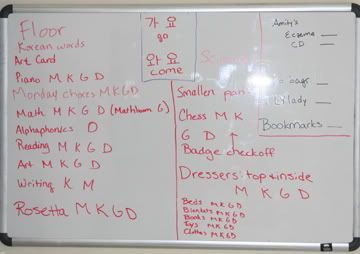 Floor
Korean words
Art Card
Piano M K G D
Monday chores M K G D
Math M K G D (Mathlearn G)
Alphaphonics O
Reading M K G D
Art M K G D
Writing K M
Rosetta M K G D
가 요
go
와 요
come
Smallen pan
Chess M K
G D ↑
Badge checkoff
Dressers top+inside
M K G D
Beds M K G D
Blankets M K G D
Books M K G D
Toys M K G D
Clothes M K G D
Amity's
Eczema
CD
bags
lady
Bookmarks